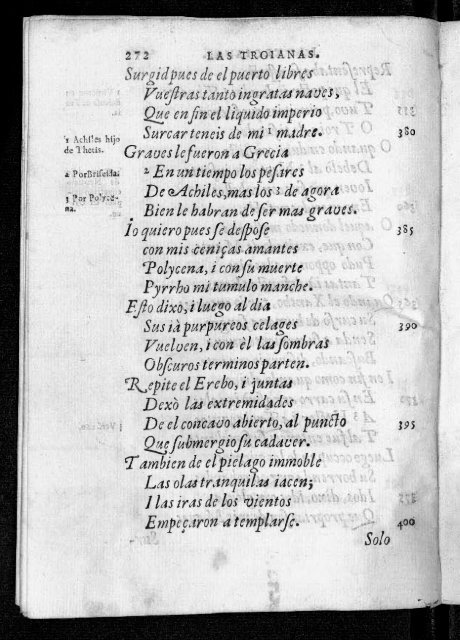 272 LAS TROIANAS.
Surgid pues de el puerto libres
Vuestras tanto ingratas naves,
Que en fin el liquido imperio
Surcar teneis de mi ¹ madre. 380
1 Achiles hijo
de Thetis.
Graves le fueron a Grecia
2 Por Briseida.
² En un tiempo los pesares
De Achiles, mas los ³ de agora
3 Por Polyce-
na.
Bien le habran de ser mas graves.
Io quiero pues se despose 385
con mis ceniças amantes
Polycena, i con su muerte
Pyrrho mi tumulo manche.
Esto dixo, i luego al dia
Sus ià purpureos celages 390
Vuelven, i con èl las sombras
Obscuros terminos parten.
Repite el Erebo, i juntas
Dexò las extremidades
De el concavo abierto, al puncto 395
Que submergio su cadaver.
Tambien de el pielago immoble
Las olas tranquilas iacen;
I las iras de los vientos
Empeçaron a templarse. 400
Solo